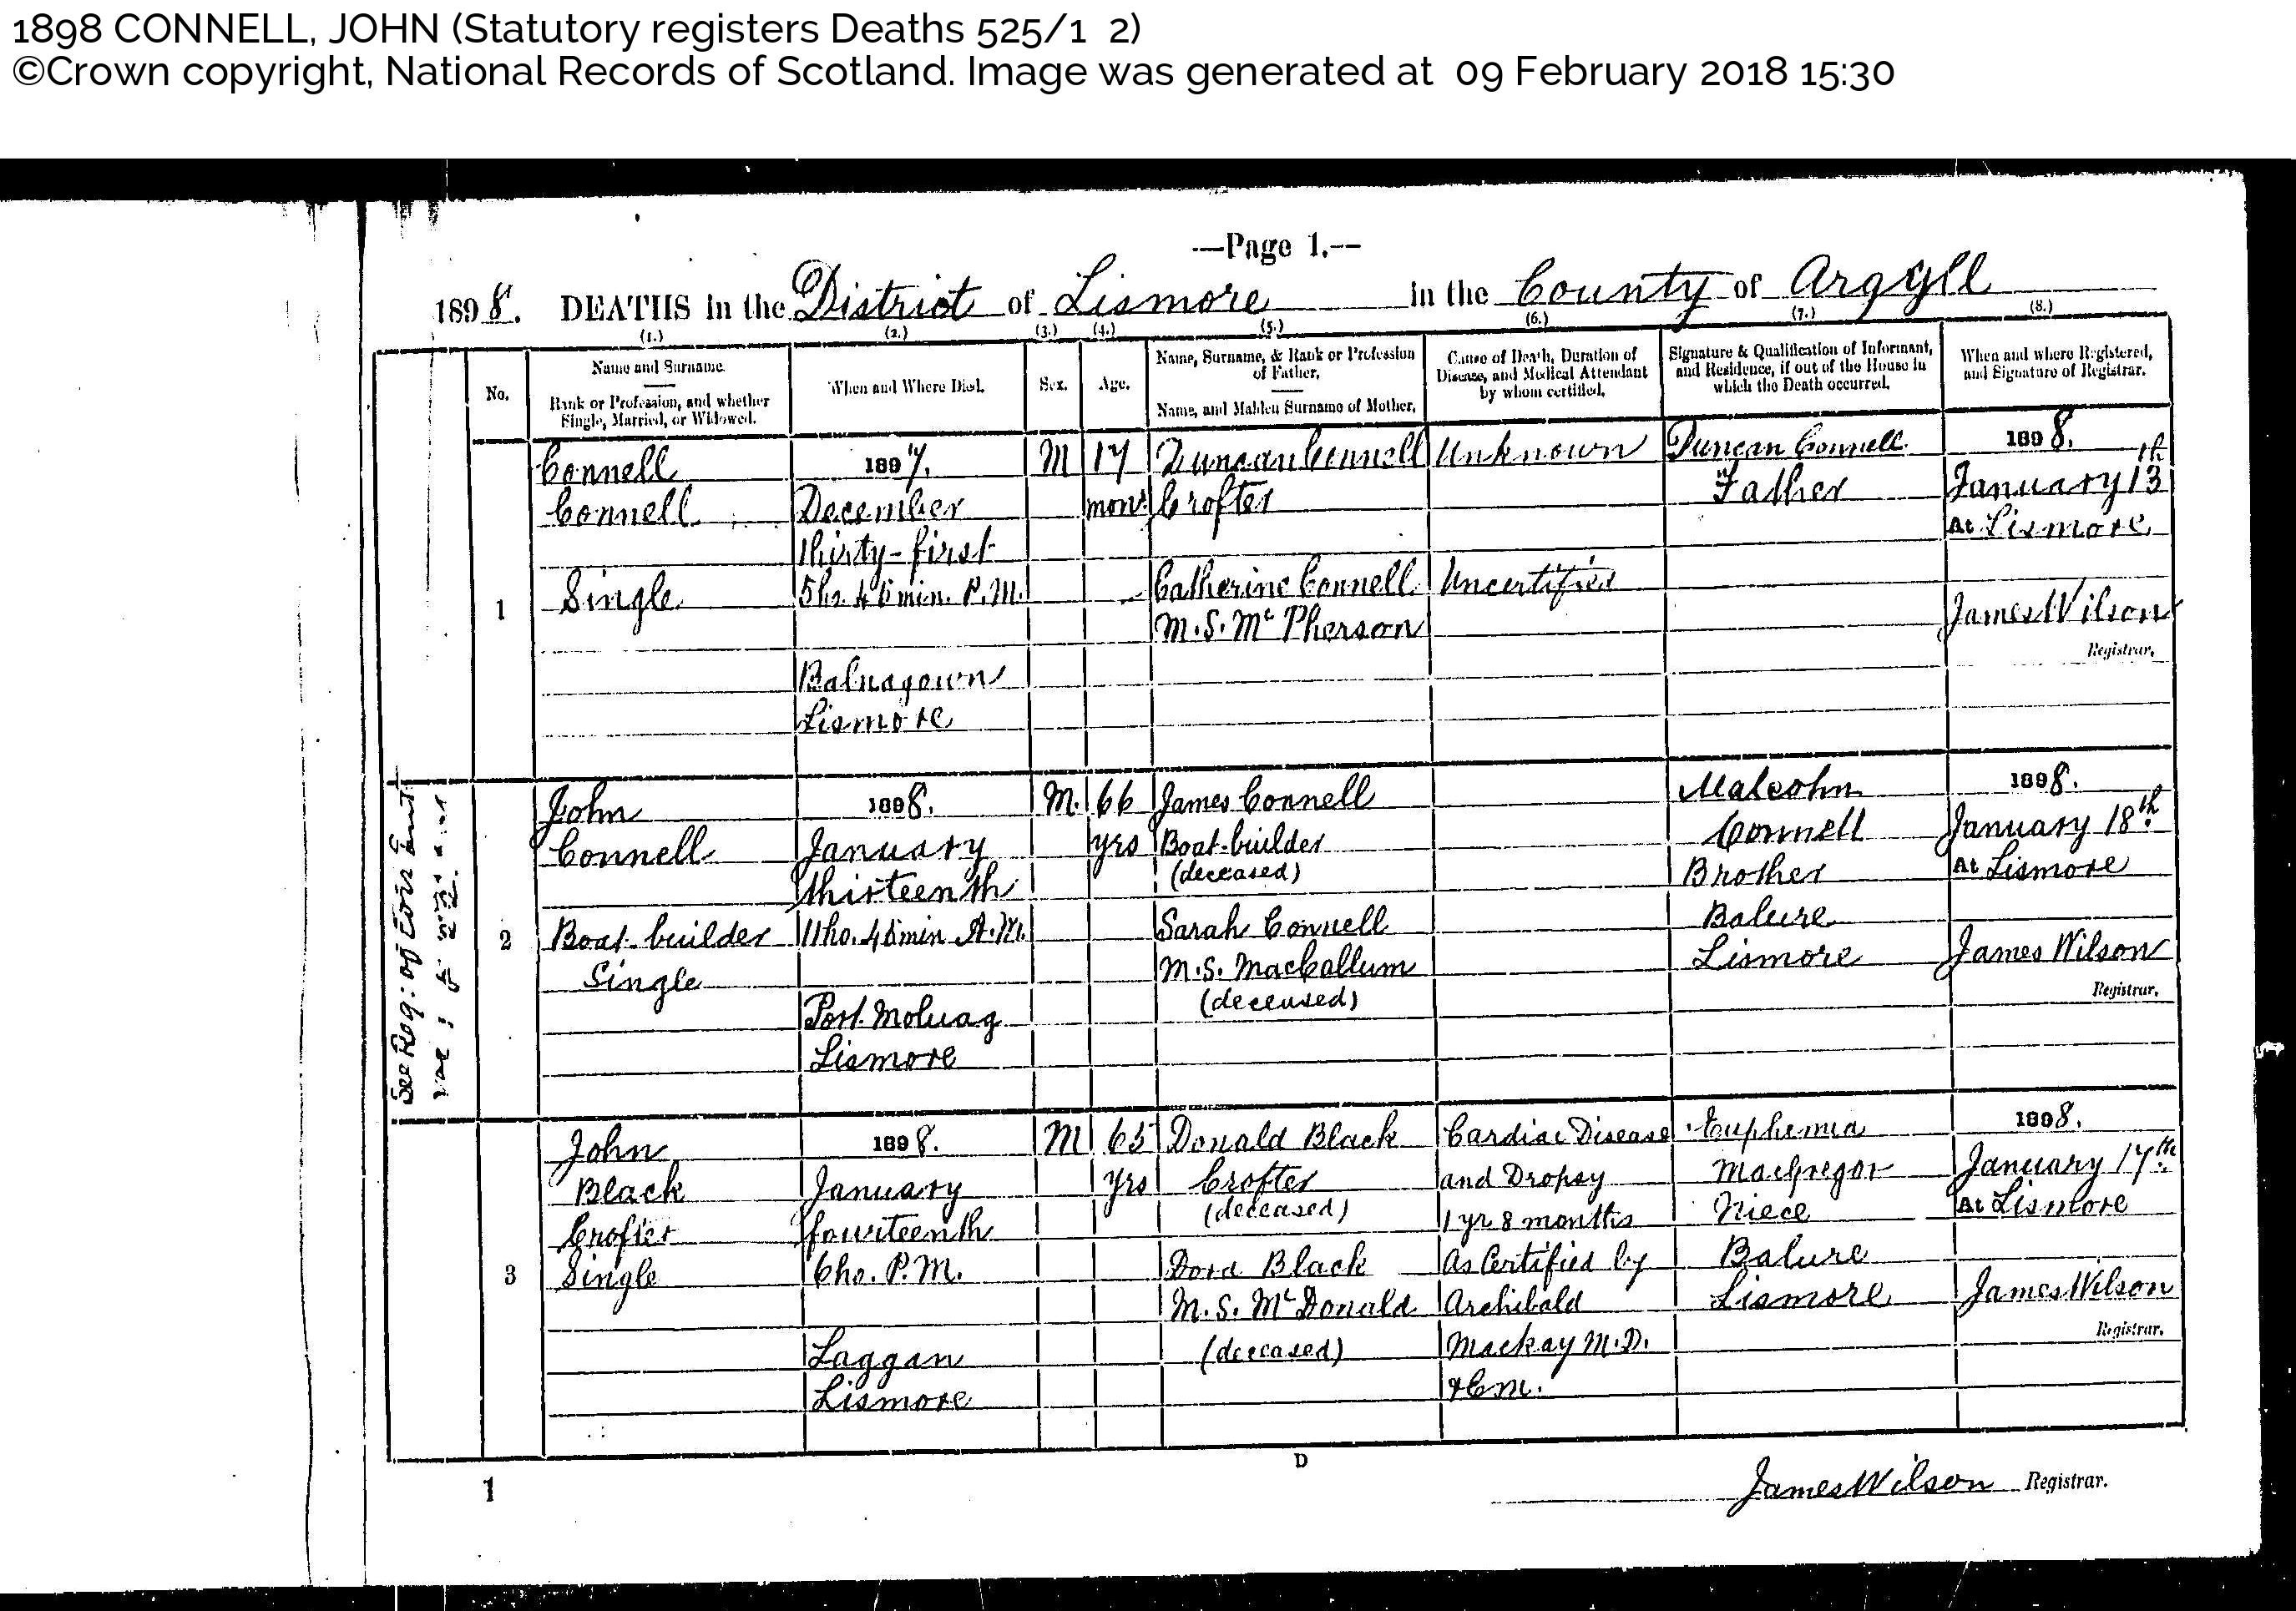 1898 CONNELL, JOHN (Statutory registers Deaths 525/1 2)
©Crown copyright, National Records of Scotland. Image was generated at 09 February 2018 15:30
—Page 1.—
1898. DEATHS in the District of Lismore in the County of Argyll
(1.) (2.) (3.) (4.) (5.) (6.) (7.) (8.)
No.
Name and Surname.
Rank or Profession, and whether
Single, Married, or Widowed.
When and Where Died.
Sex.
Age.
Name, Surname, & Rank or Profession
of Father.
Name, and Maiden Surname of Mother.
Cause of Death, Duration of
Disease, and Medical Attendant
by whom certified.
Signature & Qualification of Informant,
and Residence, if out of the House in
which the Death occurred.
When and where Registered,
and Signature of Registrar.
1
Connell
Connell
Single
1897.
December
thirty-first
5hr. 45min. P.M.
Balnagown
Lismore
M
17
mons
Duncan Connell
Crofter
Catherine Connell
M.S. McPherson
Unknown
Uncertified
Duncan Connell
Father
1898.
January 13th
At Lismore
James Wilson
Registrar.
See Reg: of Cor:
2
John
Connell
Boat-builder
Single
1898.
January
thirteenth
11ho. 45min A.M.
Port Moluag
Lismore
M.
66
yrs
James Connell
Boat-builder
(deceased)
Sarah Connell
M.S. MacCallum
(deceased)
Malcolm
Connell
Brother
Balure
Lismore
1898.
January 18th
At Lismore
James Wilson
Registrar.
3
John
Black
Crofter
Single
1898.
January
fourteenth
6ho. P.M.
Laggan
Lismore
M
65
yrs
Donald Black
Crofter
(deceased)
Dora Black
M.S. McDonald
(deceased)
Cardiac Disease
and Dropsy
1 yr 8 months
As Certified by
Archibald
Mackay M.D.
& C.M.
Euphemia
MacGregor
Niece
Balure
Lismore
1898.
January 17th
At Lismore
James Wilson
Registrar.
1
D
James Wilson Registrar.